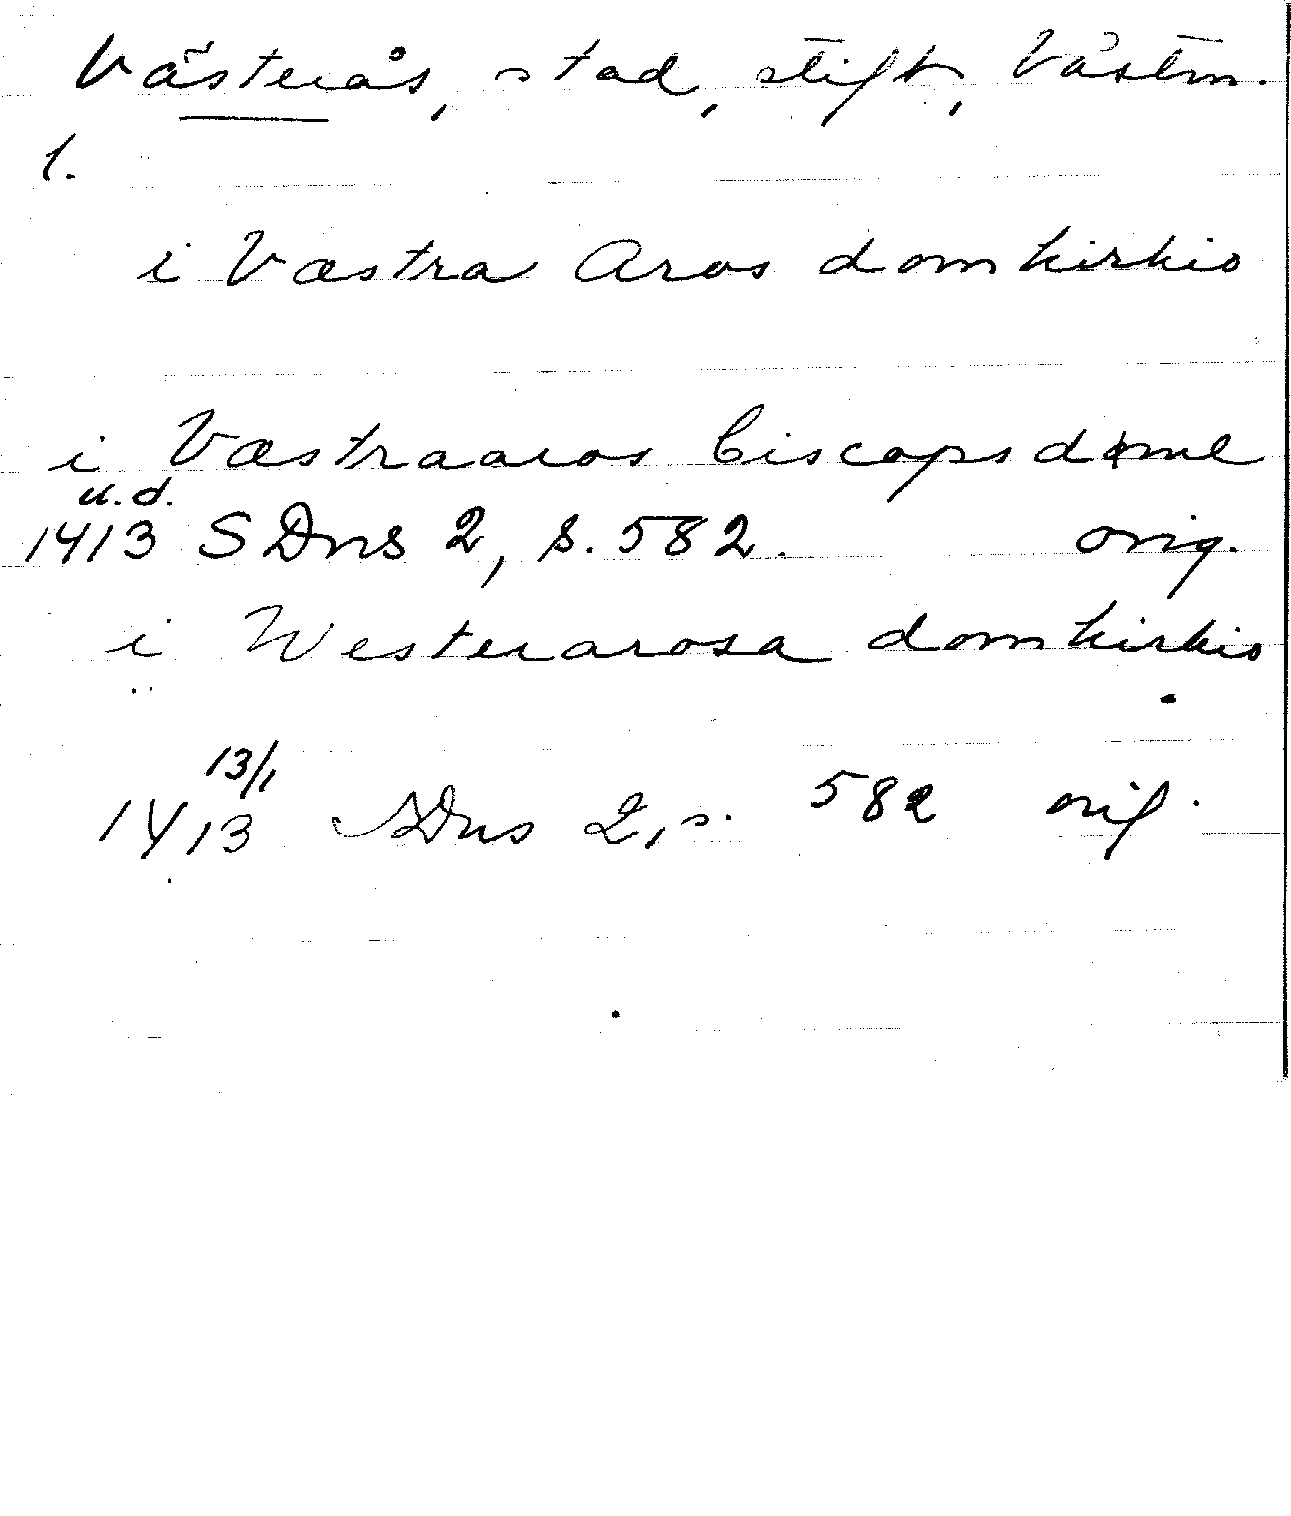 Västerås, stad, stift, Västm.
1.
i Væstra Aros domkirkio
i Væstraaros biscopsdøme
u.d.
1413 SDns 2, s. 582. orig.
i Westerarosa domkirkio
13/1
1413 SDns 2, s. 582 orig.